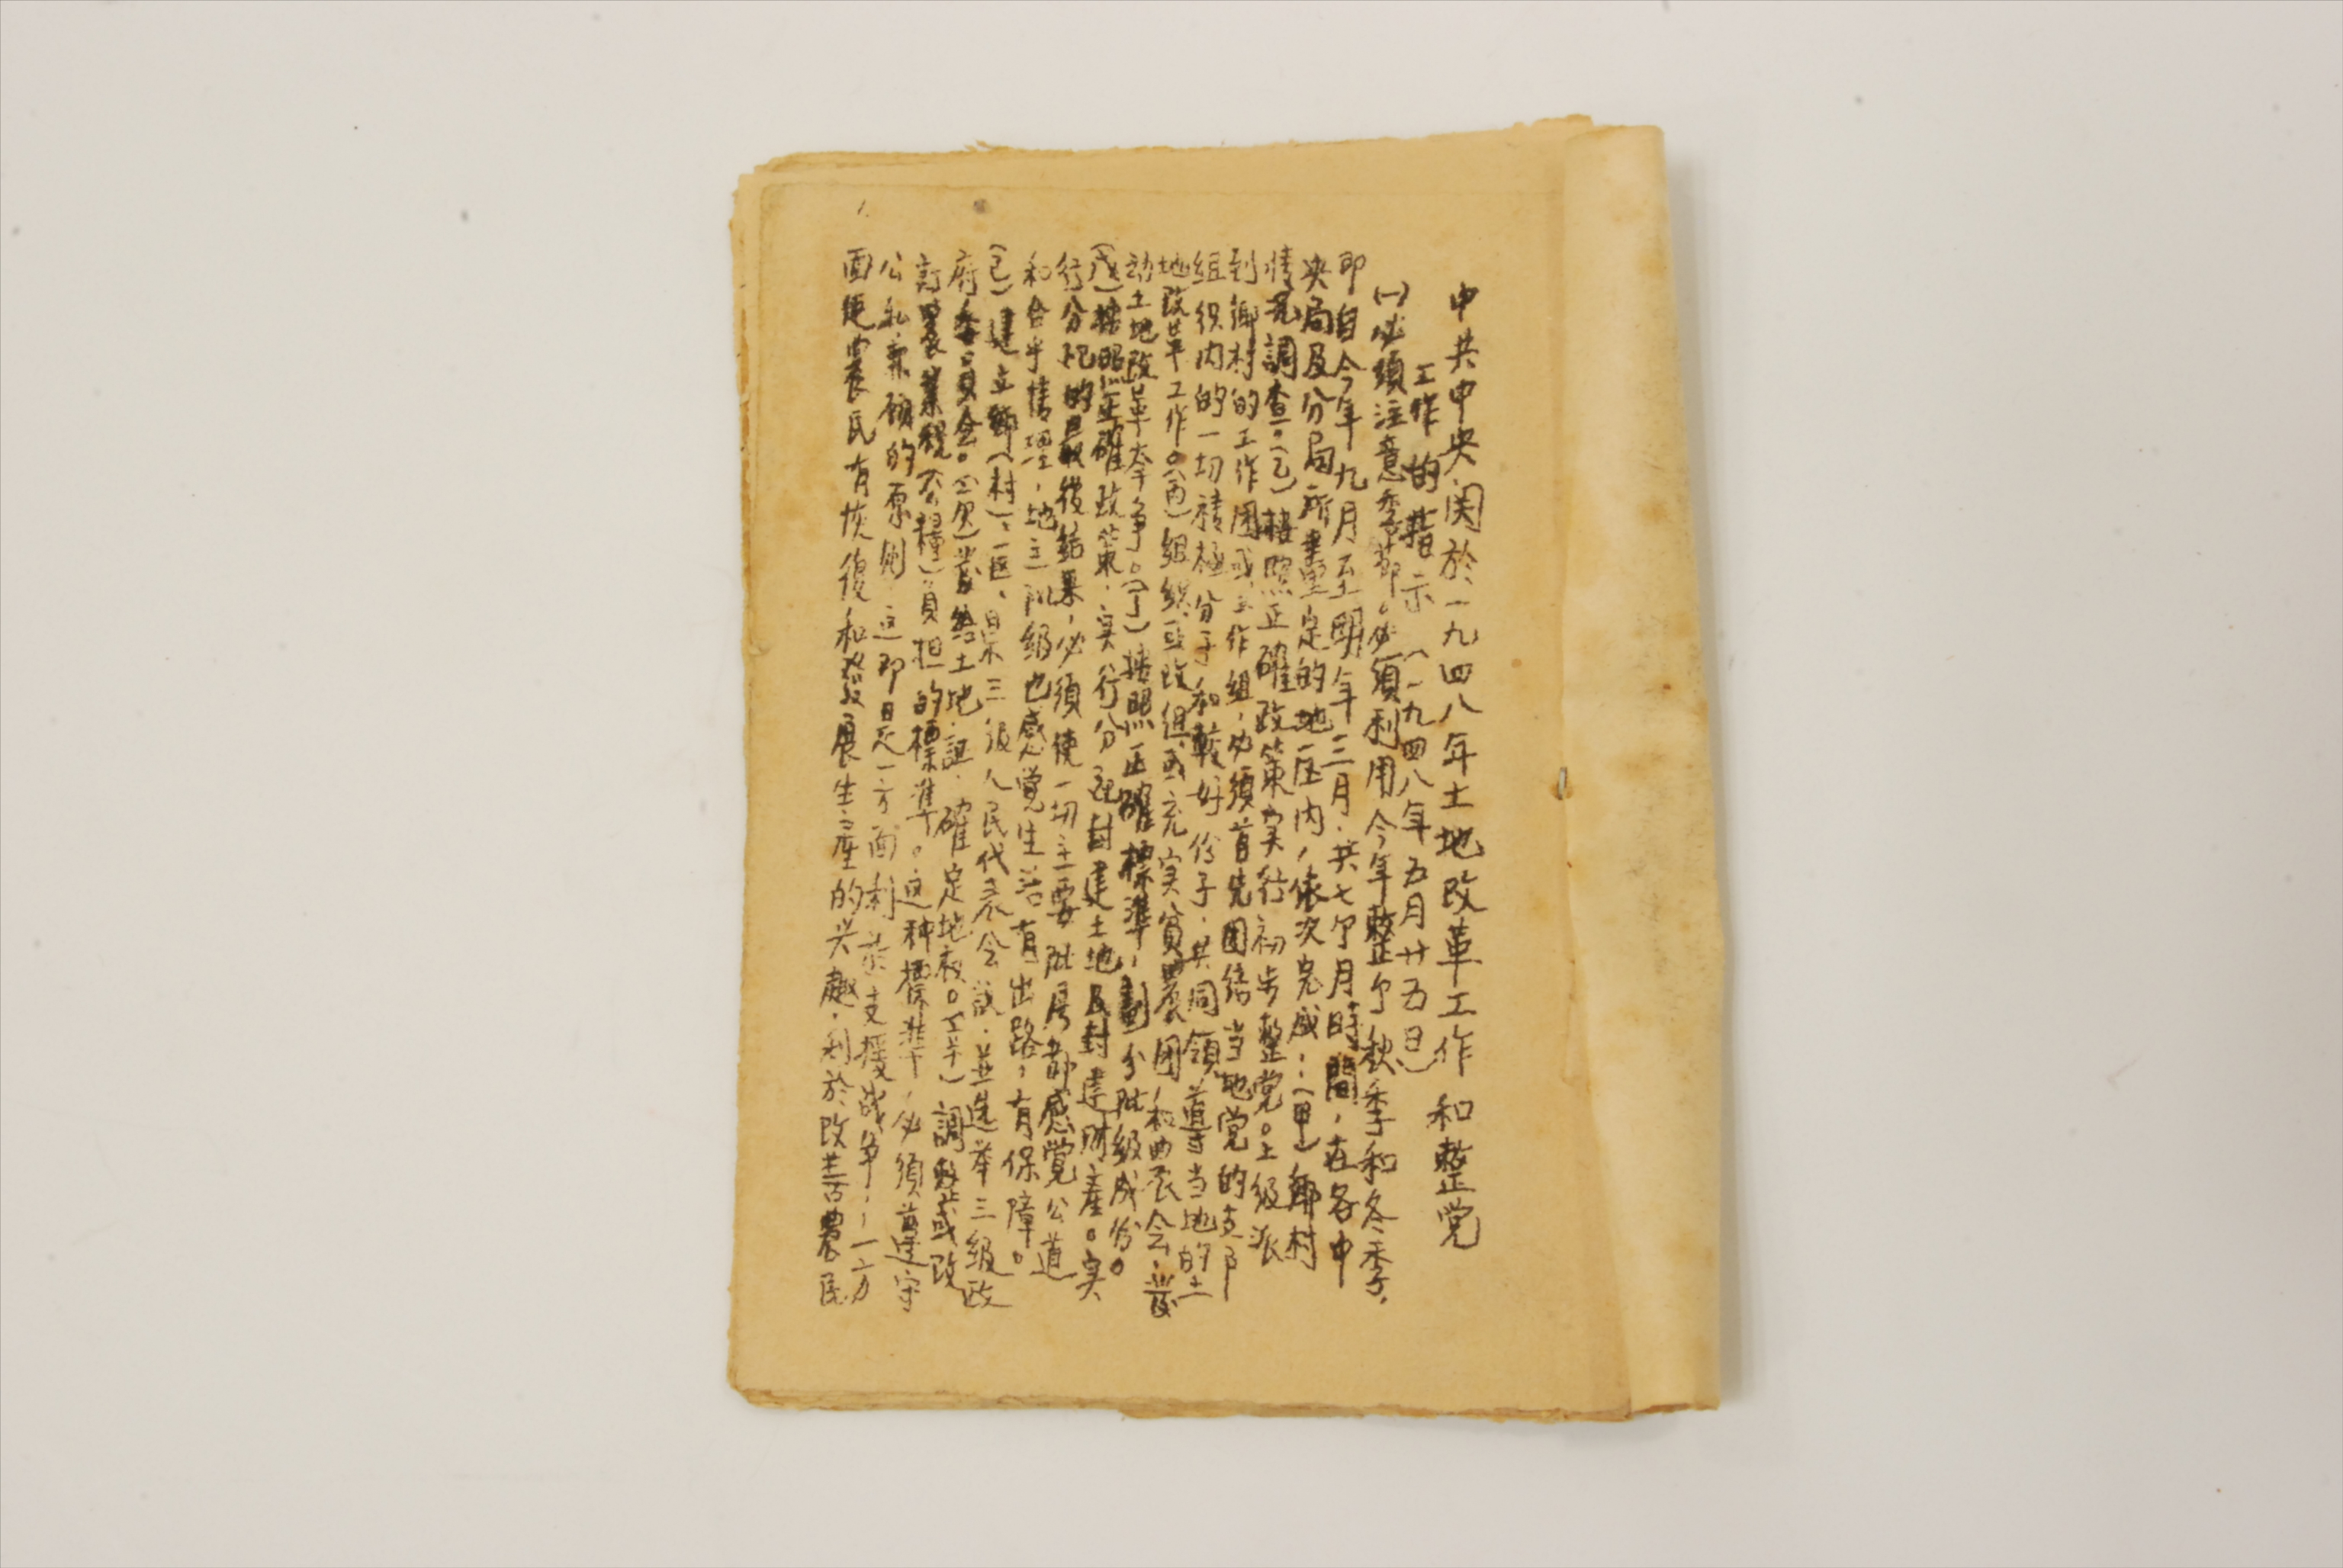 中共中央関於一九四八年土地改革工作和整党
工作的指示（一九四八年五月廿五日）
(一)必須注意季節。必須利用今年整个秋季和冬季，
即自今年九月至明年三月，共七个月時間，在各中
央局及分局所畫定的地区内，依次完成：（甲）鄉村
情况調查。（乙）按照正確政策实行初步整党。上级派
到鄉村的工作团或工作组，必須首先団结当地党的支部
组织内的一切積極分子和較好份子，共同領導当地的土
地改革工作。（丙）組织或改組或充实貧農团和農会，發
动土地改革斗争。（丁）按照正確標準，劃分阶级成份。
（戊）按照正確政策，实行分配封建土地及封建財產。实
行分配的最後结果，必須使一切主要阶層都感覚公道
和合乎情理，地主阶级也感覚生活有出路，有保障。
（己）建立鄉（村）、区、県三级人民代表会議，並选举三级政
府委員会。（庚）發给土地証，確定地权。（辛）調整或改
訂農業税（公糧）負担的標準。这种標準，必須遵守
公私兼顾的原则，这即是一方面利於支援战争，一方
面使農民有恢復和發展生產的兴趣，利於改善農民